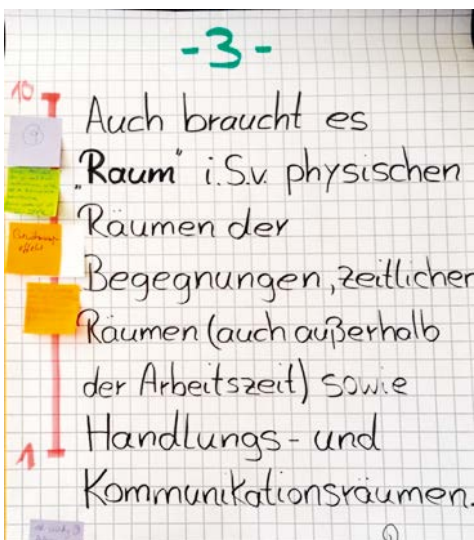 -3-
10
Auch braucht es
"Raum" i.S.v. physischen
Räumen der
Begegnungen, zeitlicher
Räumen (auch außerhalb
der Arbeitszeit) sowie
Handlungs- und
1
Kommunikationsräumen.